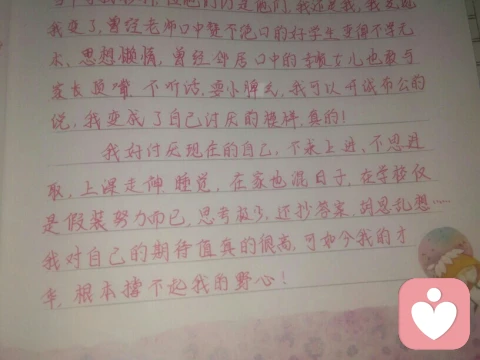 我变了,曾经老师口中赞不绝口的好学生变得不学无
术、思想懒惰,曾经邻居口中的孝顺女儿也敢与
家长顶嘴,不听话,耍小脾气,我可以开诚布公的
说,我变成了自己讨厌的模样,真的!
我好讨厌现在的自己,不求上进,不思进
取,上课走神睡觉,在家也混日子,在学校仅
是假装努力而已,思考极少,还抄答案,胡思乱想……
我对自己的期待值真的很高,可如今我的才
华,根本撑不起我的野心!